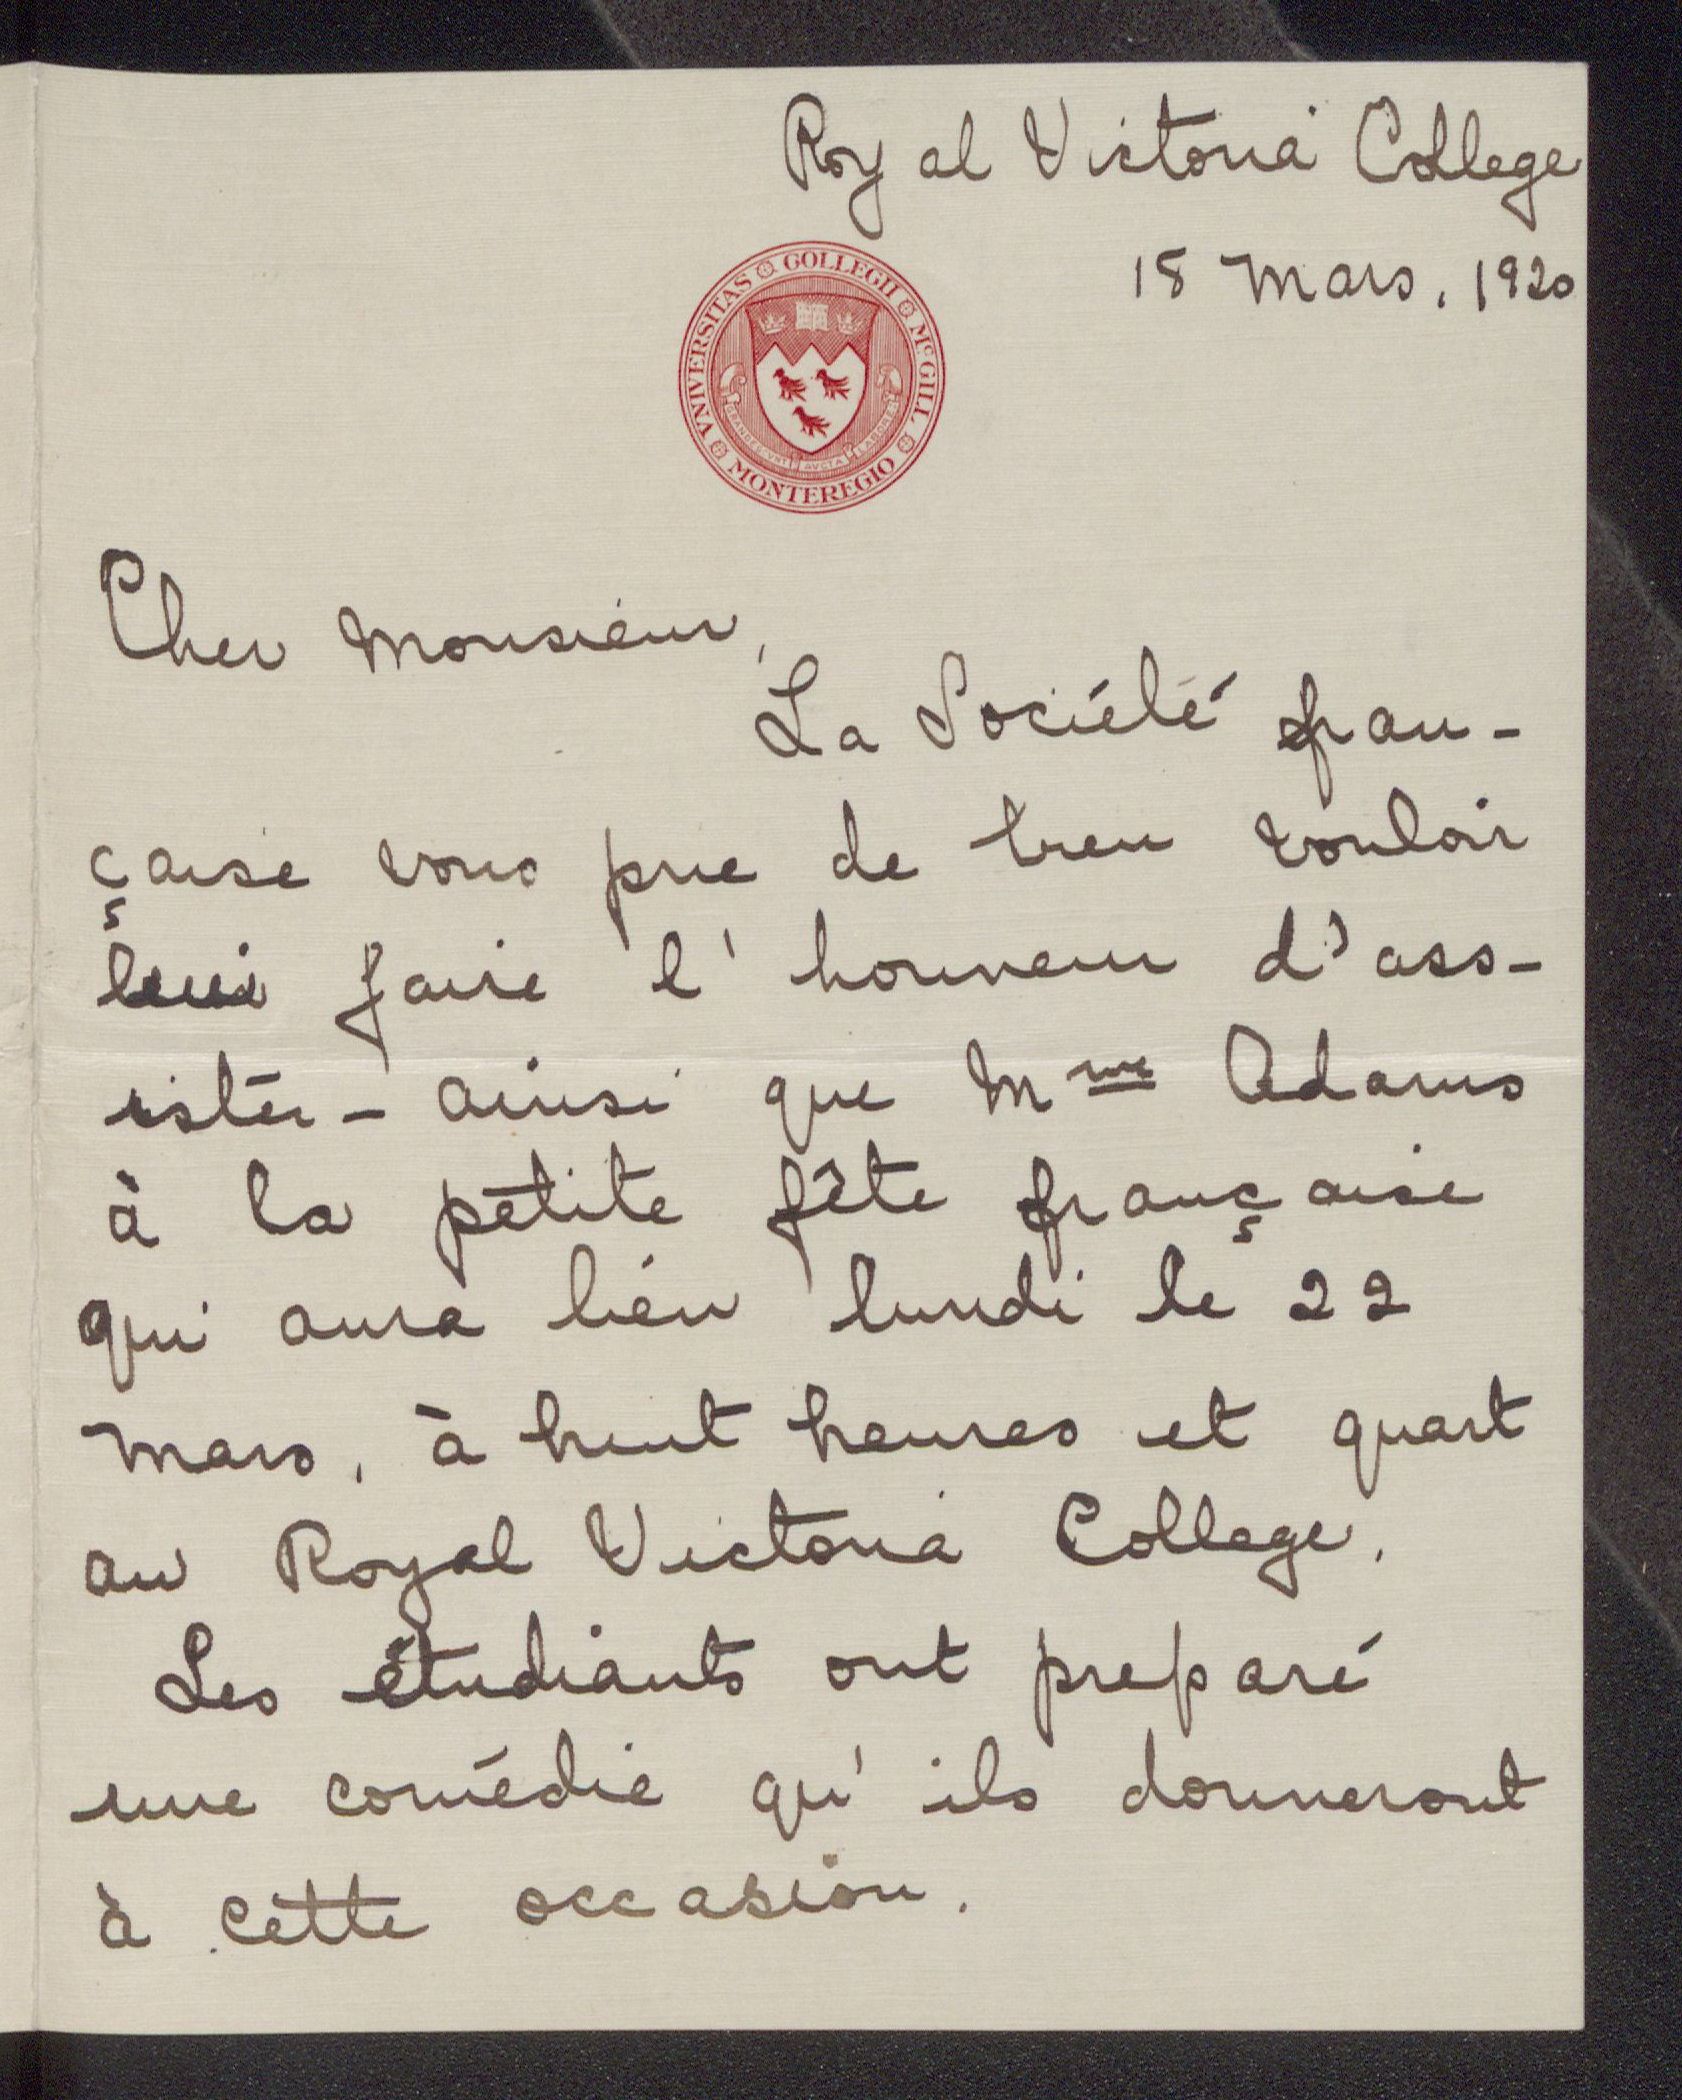 Royal Victoria College
18 Mars, 1920
UNIVERSITAS COLLEGII McGILL MONTEREGIO
GRANDESCUNT AUCTA LABORE
Cher Monsieur,
La Société fran-
çaise vous prie de bien vouloir
lui faire l'honneur d'ass-
ister - ainsi que Mme Adams
à la petite fête française
qui aura lieu lundi le 22
Mars, à huit heures et quart
au Royal Victoria College.
Les étudiants ont preparé
une comédie qu'ils donneront
à cette occasion.